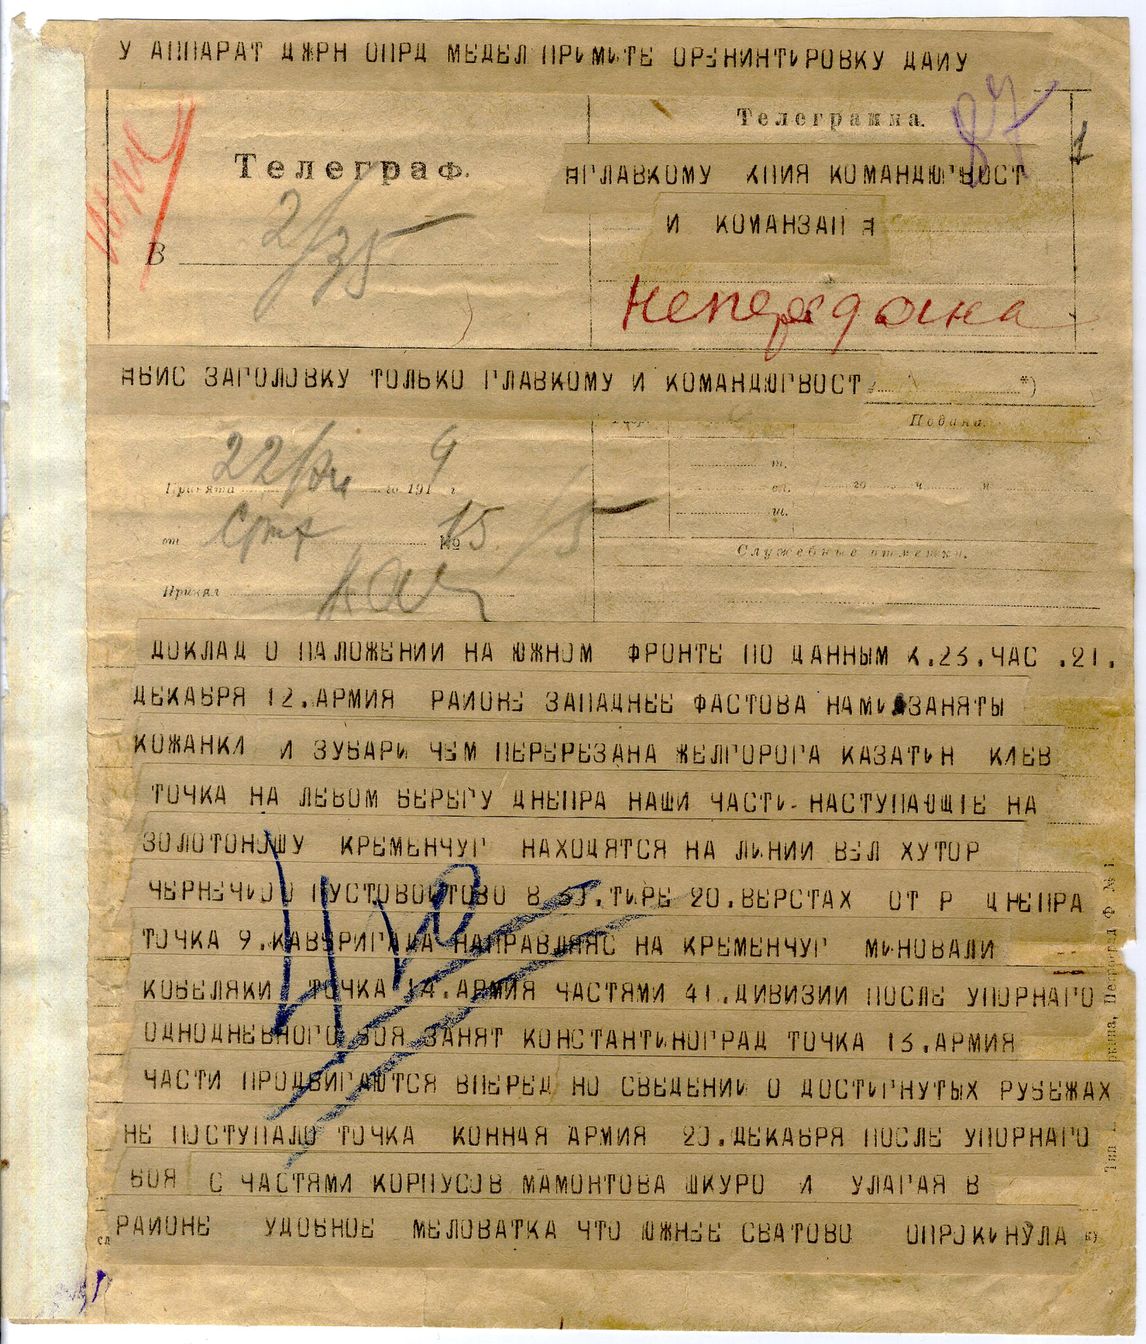 У АППАРАТ ДЖРН ОПРД МЕДЕЛ ПРИМИТЕ ОРЕНИНТИРОВКУ ДАИУ
87
Телеграмма.
1
Телеграф.
ЯГЛАВКОМУ КПИЯ КОМАНДЮГВОСТ
2/35
И КОМАНЗАП Я
В
Непередана
ЯБИС ЗАГОЛОВКУ ТОЛЬКО ГЛАВКОМУ И КОМАНДЮГВОСТ *)
Подана.
22/XII 9
Принята го 191 г.
т.
сл. го ч м
ш.
от № 15 /5
Служебные отметки.
Принял
ДОКЛАД О ПАЛОЖЕНИИ НА ЮЖНОМ ФРОНТЕ ПО ДАННЫМ К.23.ЧАС .21.
ДЕКАБРЯ 12.АРМИЯ РАЙОНЕ ЗАПАДНЕЕ ФАСТОВА НАМИ ЗАНЯТЫ
КОЖАНКИ И ЗУБАРИ ЧЕМ ПЕРЕРЕЗАНА ЖЕЛГОРОГА КАЗАТИН КИЕВ
ТОЧКА НА ЛЕВОМ БЕРЕГУ ДНЕПРА НАШИ ЧАСТИ НАСТУПАЮЩІЕ НА
ЗОЛОТОНОШУ КРЕМЕНЧУГ НАХОДЯТСЯ НА ЛИНИИ ВЕЛ ХУТОР
ЧЕРНЕЧИОЛ ПУСТОВОИТОВО В ТИРЕ 20.ВЕРСТАХ ОТ Р ДНЕПРА
ТОЧКА 9.КАВБРИГАДА НАПРАВЛЯЯС НА КРЕМЕНЧУГ МИНОВАЛИ
КОБЕЛЯКИ ТОЧКА 14.АРМИЯ ЧАСТЯМИ 41.ДИВИЗИИ ПОСЛЕ УПОРНАГО
ОДНОДНЕВНОГО БОЯ ЗАНЯТ КОНСТАНТИНОГРАД ТОЧКА 13.АРМИЯ
ЧАСТИ ПРОДВИГАЮТСЯ ВПЕРЕД НО СВЕДЕНИИ О ДОСТИГНУТЫХ РУБЕЖАХ
НЕ ПОСТУПАЛО ТОЧКА КОННАЯ АРМИЯ 20.ДЕКАБРЯ ПОСЛЕ УПОРНАГО
БОЯ С ЧАСТЯМИ КОРПУСОВ МАМОНТОВА ШКУРО И УЛАГАЯ В
РАЙОНЕ УДОБНОЕ МЕЛОВАТКА ЧТО ЮЖНЕЕ СВАТОВО ОПРОКИНУЛА